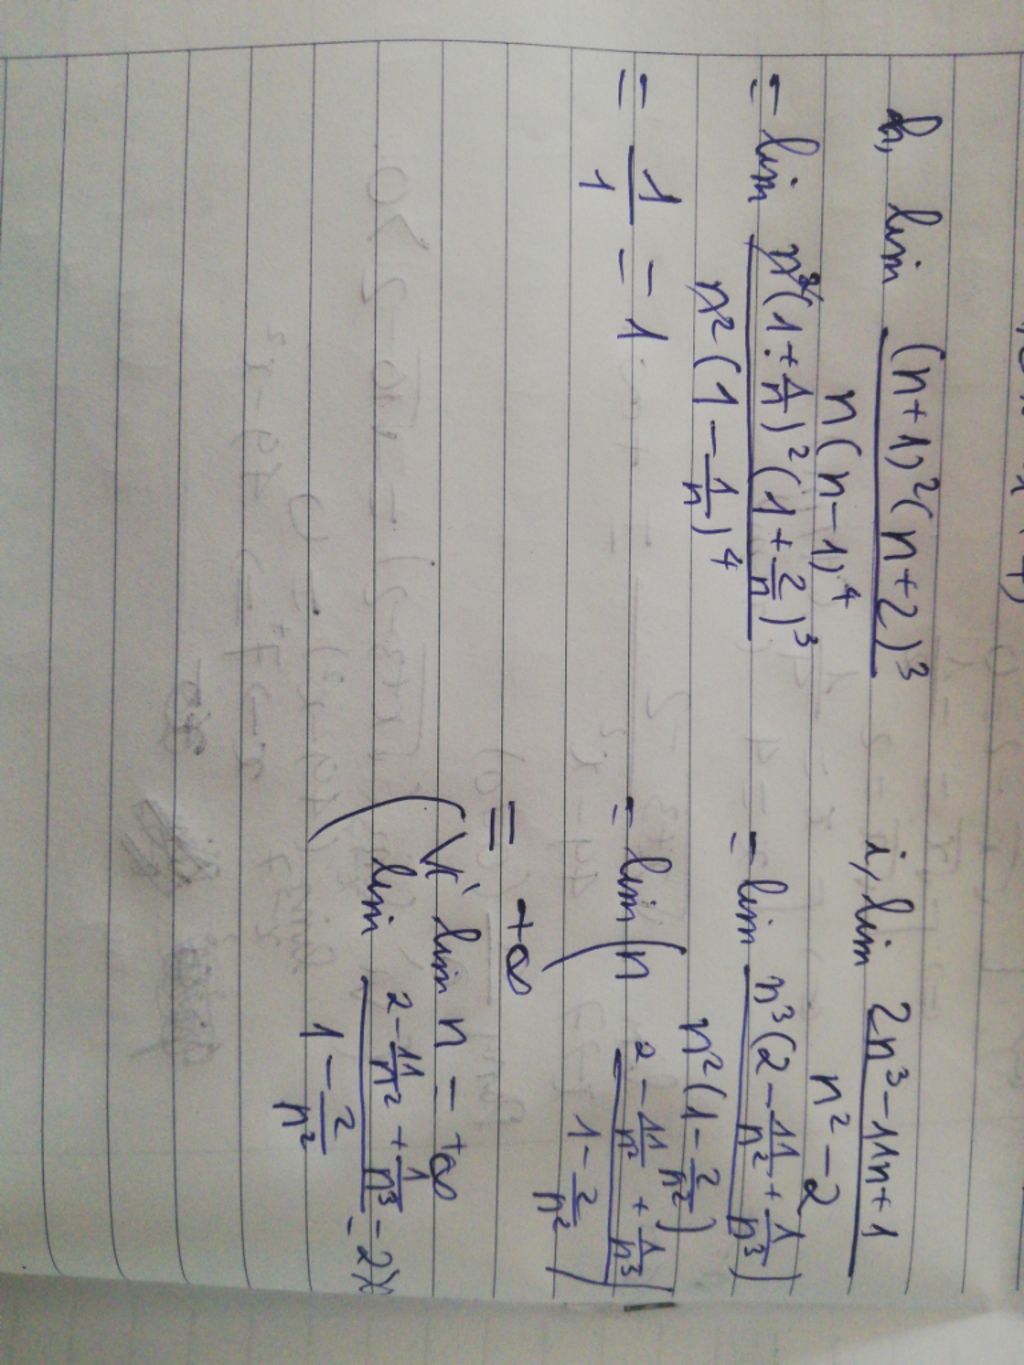 h, lim (n+1)²(n+2)³ / n(n-1)⁴
= lim n²(1+1/n)²(1+2/n)³ / n²(1-1/n)⁴
= 1/1 = 1
i, lim 2n³-11n+1 / n²-2
= lim n³(2-11/n²+1/n³) / n²(1-2/n²)
= lim (n 2-11/n²+1/n³ / 1-2/n²)
= +∞
(Vì lim n = +∞
lim 2-11/n²+1/n³ / 1-2/n² = 2)